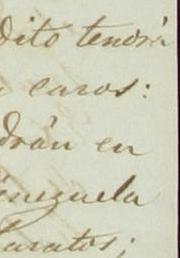 dito tendrá
caros:
drán en
enezuela
baratos;